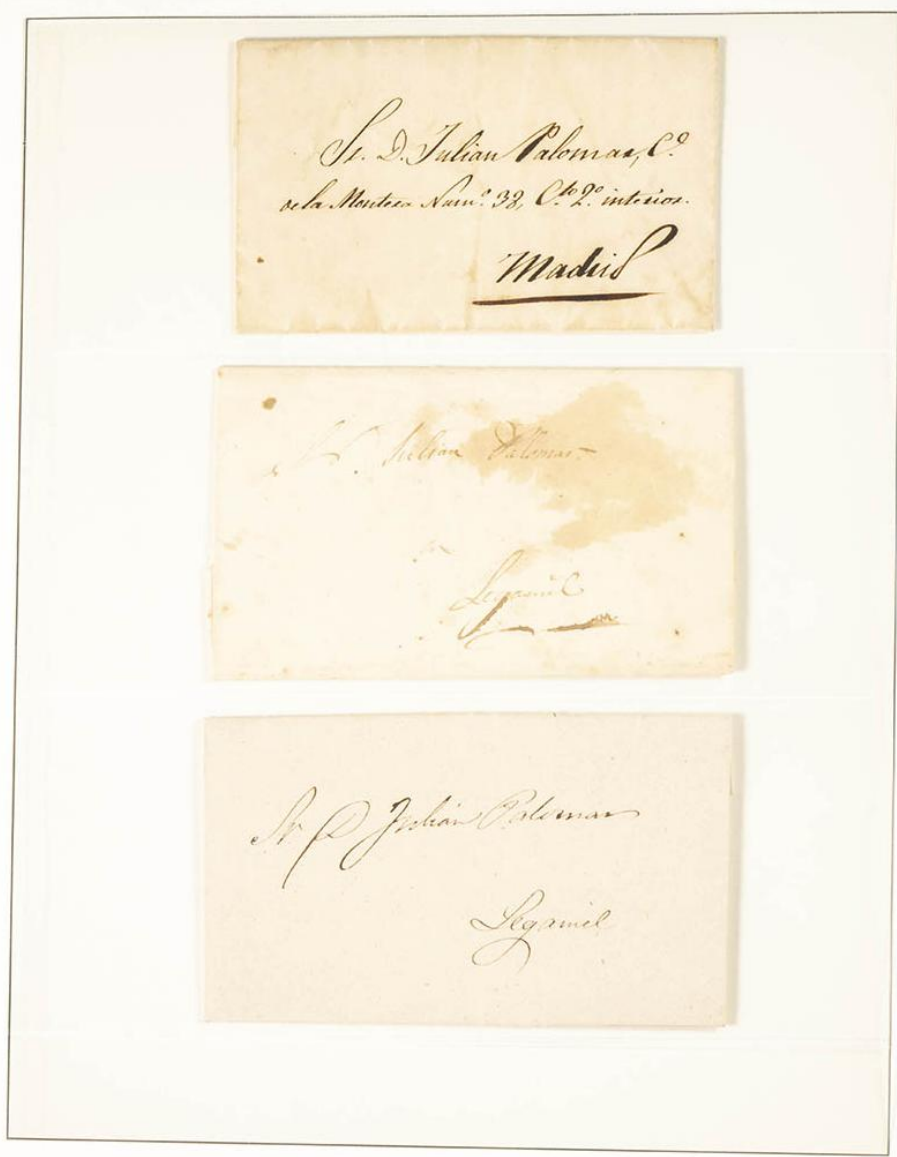 Sr. D. Julian Palomar, C.ᵉ
de la Montera Num.º 38, C.ᵗᵒ 2.º interior.
Madrid
Julian Palomar
en
Legamiel
Sr D Julián Palomar
Legamiel